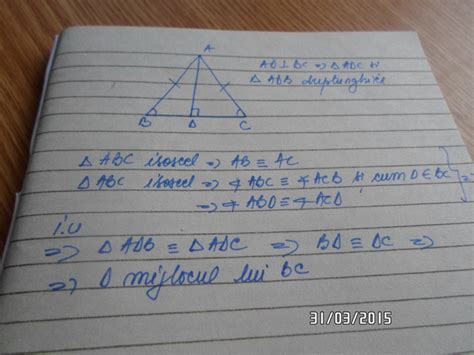 A
AD ⊥ BC ⇒ △ ADC și
△ ADB dreptunghice
B D C
△ ABC isoscel ⇒ AB ≡ AC
△ ABC isoscel ⇒ ∢ ABC ≡ ∢ ACB și cum D ∈ BC } ⇒
⇒ ∢ ABD ≡ ∢ ACD
i.u
⇒ △ ADB ≡ △ ADC ⇒ BD ≡ DC ⇒
⇒ D mijlocul lui BC
31/03/2015